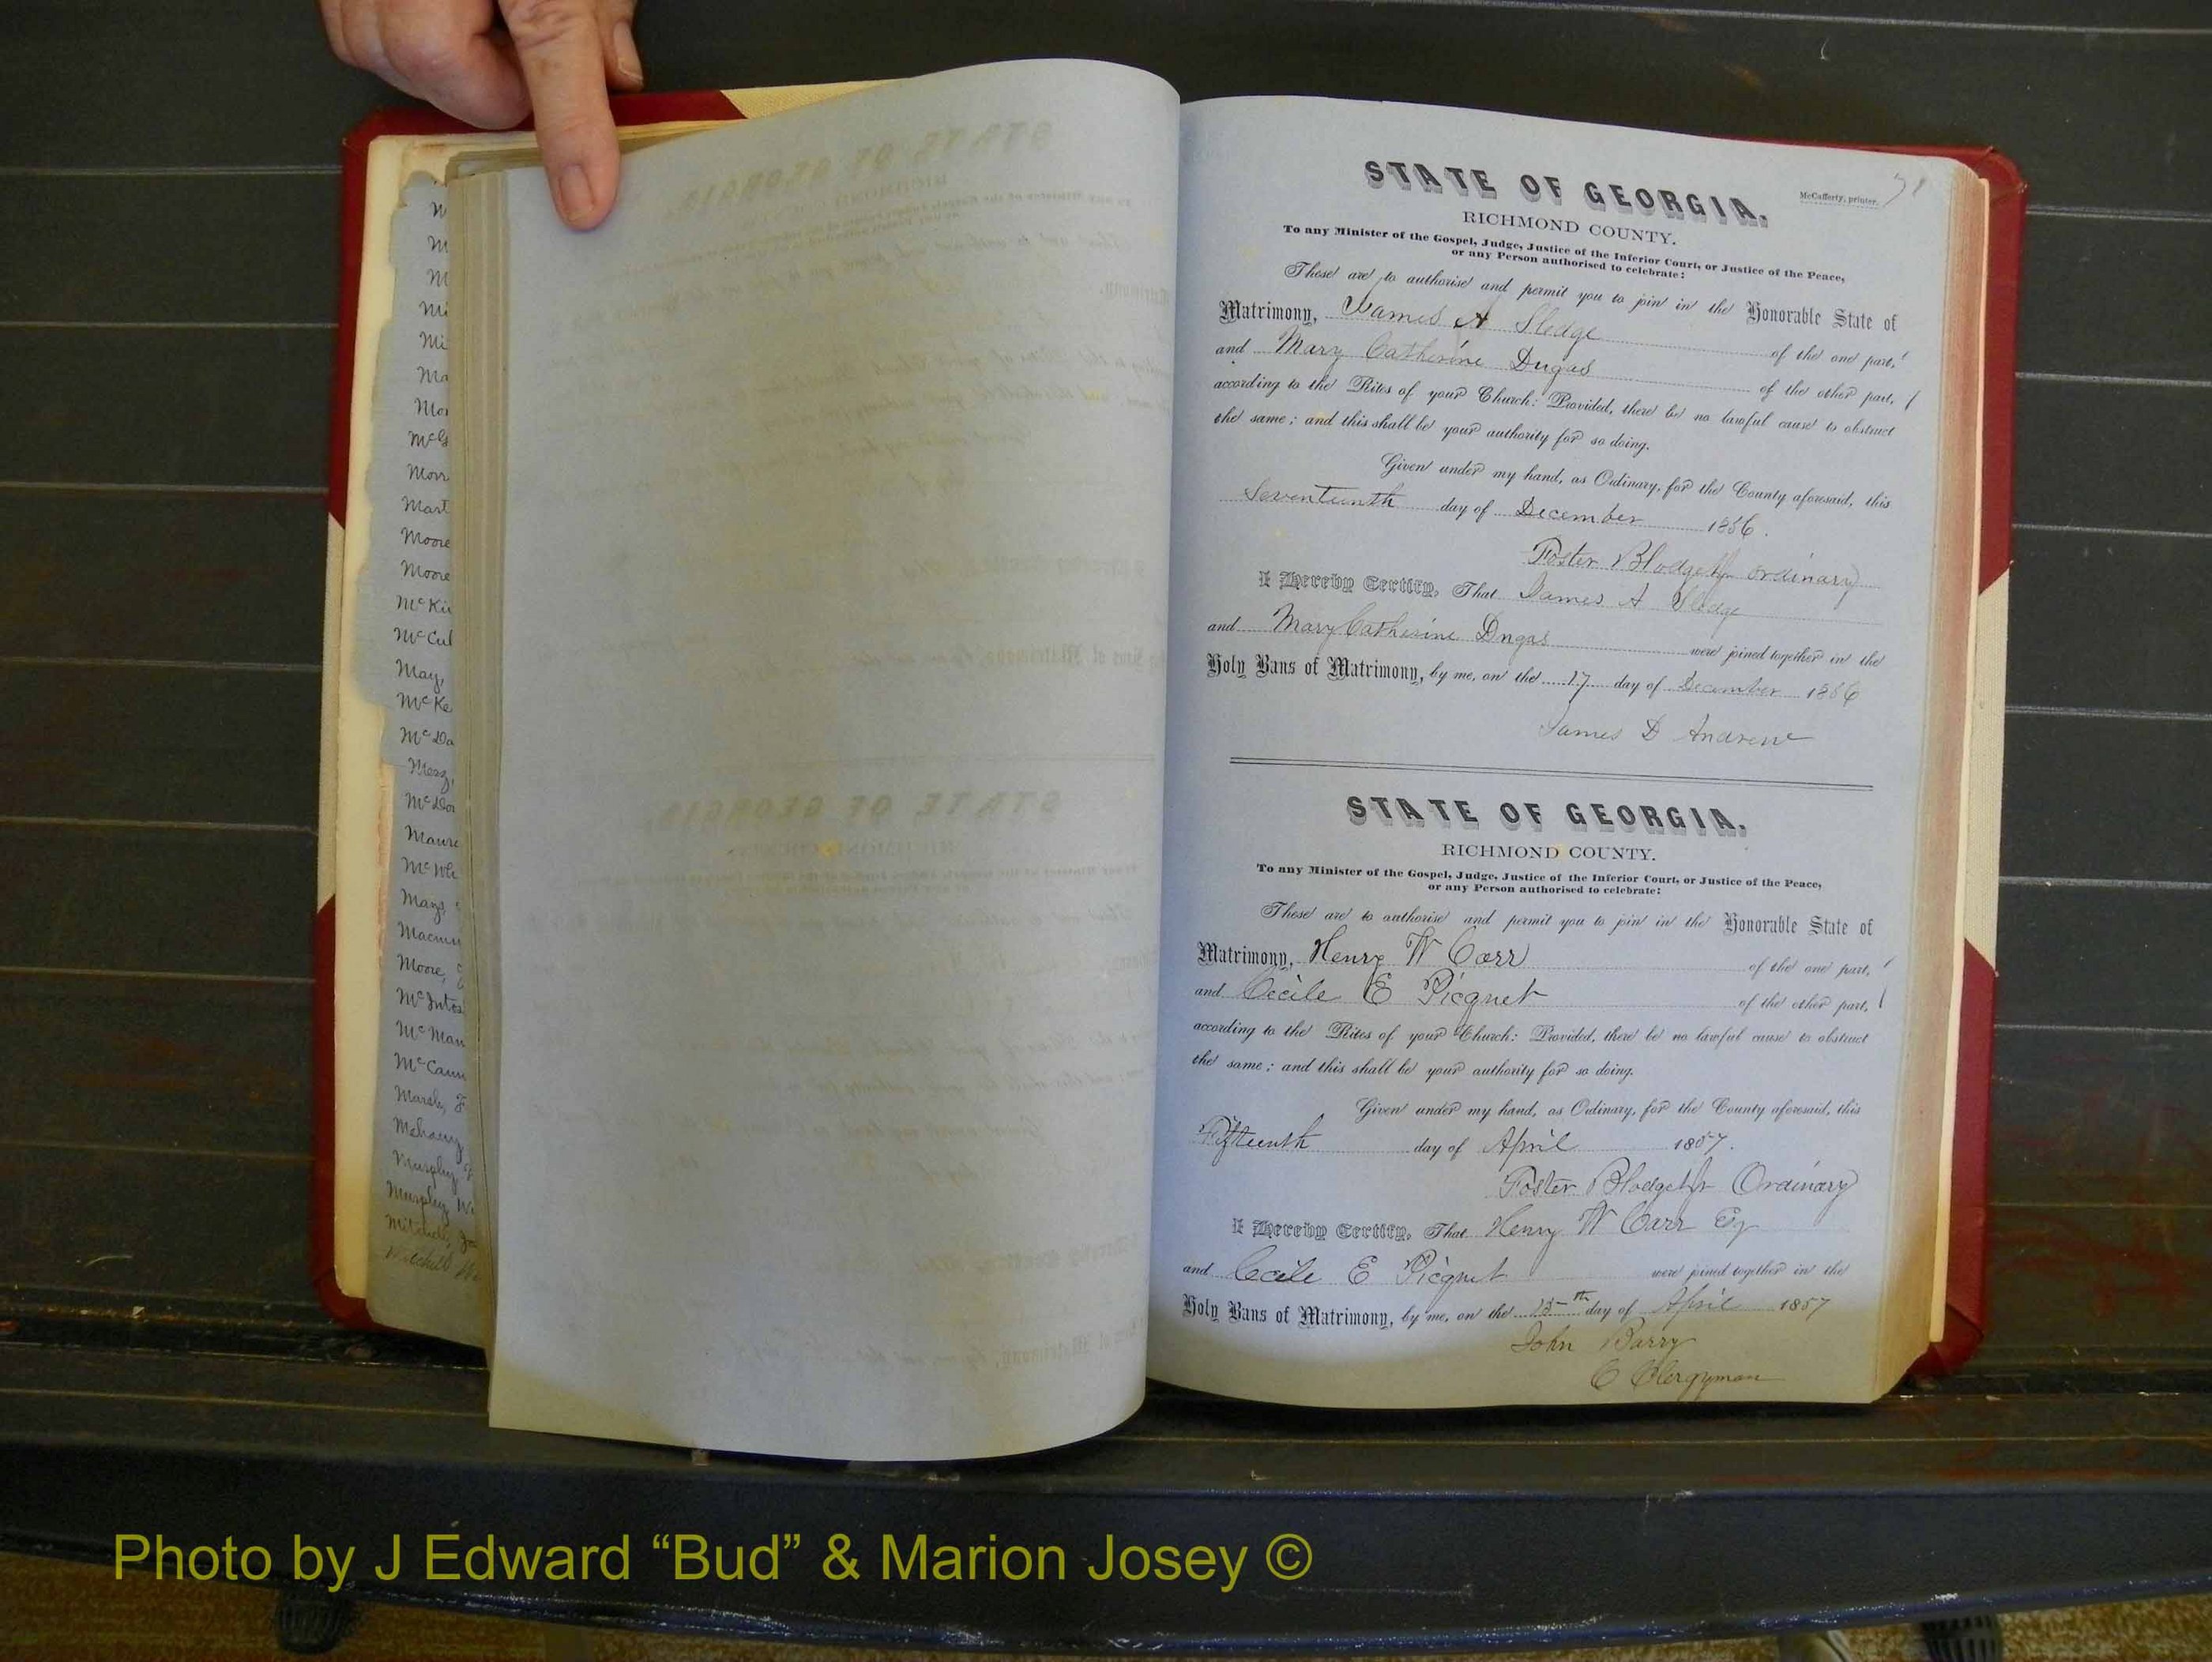 M
M
M
Mi
Mi
Ma
Mor
McG
Morr
Mart
Moore
Moore
McKi
McCul
May,
McKe
McDa
McDo
Maur
McWh
Mays,
Moore, J
McIntos
McMan
McCann
Marsh, F
Murphy
Murphy, W
Mitchell, Jo
Mitchell
STATE OF GEORGIA.
McCafferty, printer.
71
RICHMOND COUNTY.
To any Minister of the Gospel, Judge, Justice of the Inferior Court, or Justice of the Peace,
or any Person authorised to celebrate:
These are to authorise and permit you to join in the Honorable State of
Matrimony, James A Sledge of the one part,
and Mary Catherine Dugas of the other part,
according to the Rites of your Church: Provided, there be no lawful cause to obstruct
the same; and this shall be your authority for so doing.
Given under my hand, as Ordinary, for the County aforesaid, this
Seventeenth day of December 1856.
Foster Blodget Jr Ordinary
I Hereby Certify, That James A Sledge
and Mary Catherine Dugas were joined together in the
Holy Bans of Matrimony, by me, on the 17 day of December 1856
James D Andrew
STATE OF GEORGIA.
RICHMOND COUNTY.
To any Minister of the Gospel, Judge, Justice of the Inferior Court, or Justice of the Peace,
or any Person authorised to celebrate:
These are to authorise and permit you to join in the Honorable State of
Matrimony, Henry W Carr of the one part,
and Cecile E Picquet of the other part,
according to the Rites of your Church: Provided, there be no lawful cause to obstruct
the same; and this shall be your authority for so doing.
Given under my hand, as Ordinary, for the County aforesaid, this
Fifteenth day of April 1857.
Foster Blodget Jr Ordinary
I Hereby Certify, That Henry W Carr Eq
and Cecile E Picquet were joined together in the
Holy Bans of Matrimony, by me, on the 15th day of April 1857
John Barry
C Clergyman
Photo by J Edward “Bud” & Marion Josey ©